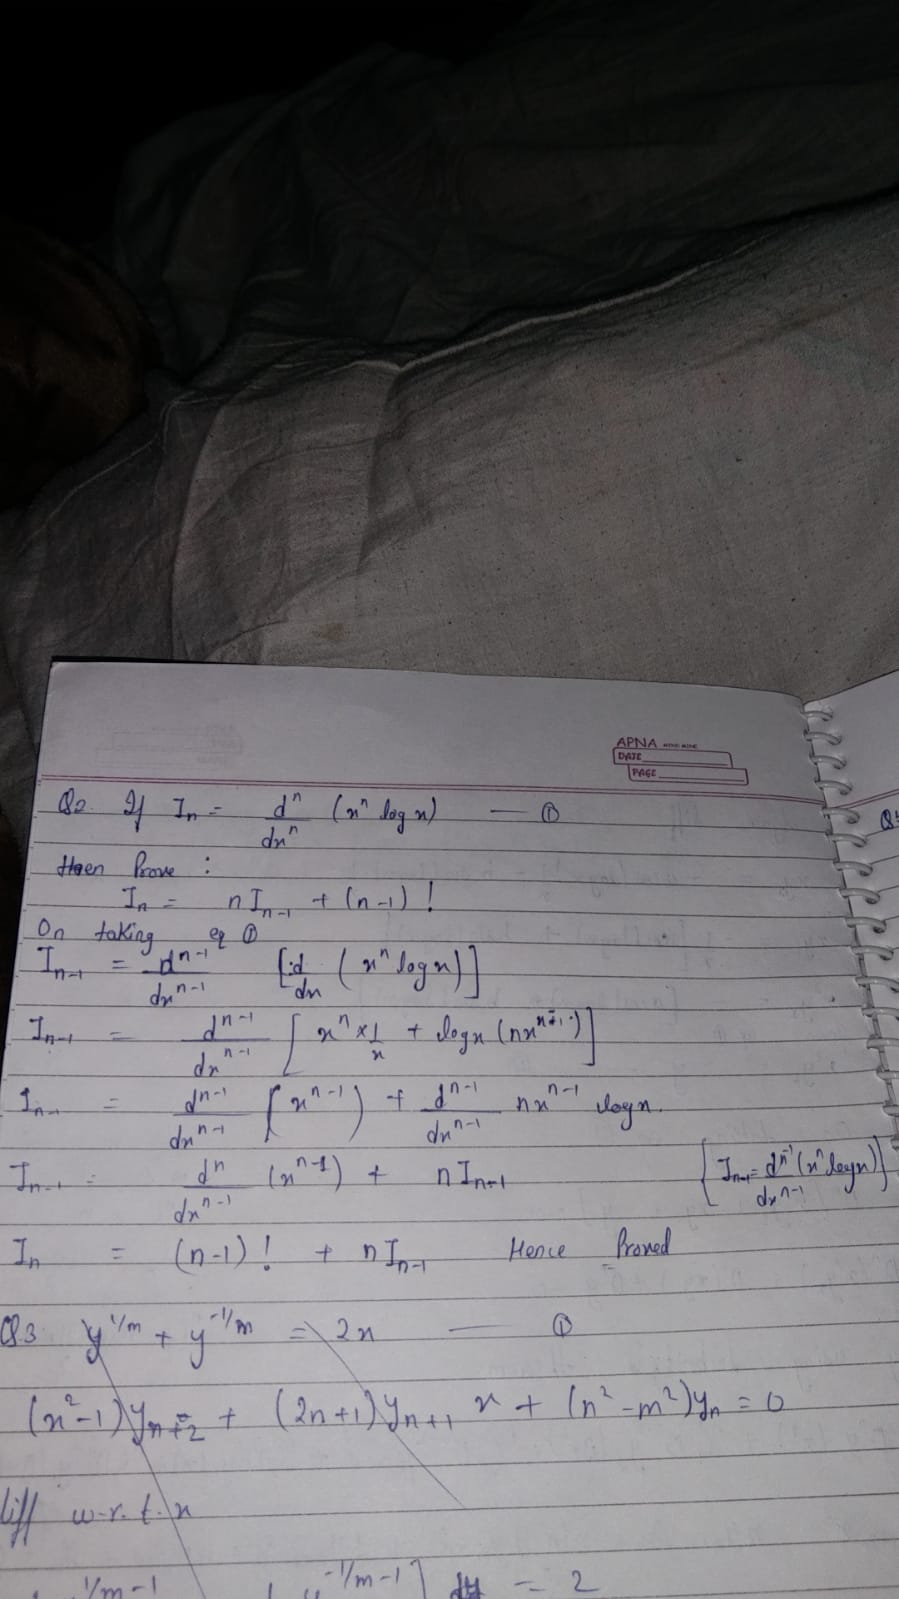 APNA
DATE
PAGE
Q2. If Iₙ = dⁿ/dxⁿ (xⁿ log x) — ①
then Prove :
Iₙ = n Iₙ₋₁ + (n-1) !
On taking eq ①
Iₙ₋₁ = dⁿ⁻¹/dxⁿ⁻¹ [d/dx (xⁿ log x)]
Iₙ₋₁ = dⁿ⁻¹/dxⁿ⁻¹ [xⁿ × 1/x + log x (nxⁿ⁻¹)]
Iₙ₋ = dⁿ⁻¹/dxⁿ⁻¹ (xⁿ⁻¹) + dⁿ⁻¹/dxⁿ⁻¹ nxⁿ⁻¹ log x.
Iₙ₋₁ = dⁿ/dxⁿ⁻¹ (xⁿ⁻¹) + n Iₙ₋₁ {Iₙ₋₁ = dⁿ⁻¹/dxⁿ⁻¹ (xⁿ log x)}
Iₙ = (n-1) ! + n Iₙ₋₁ Hence Proved
Q3 y^(1/m) + y^(-1/m) = 2x — ①
(x²-1) yₙ₊₂ + (2n+1) yₙ₊₁ x + (n²-m²) yₙ = 0
diff w.r.t. x
1/m-1 y^(-1/m-1)] dy = 2